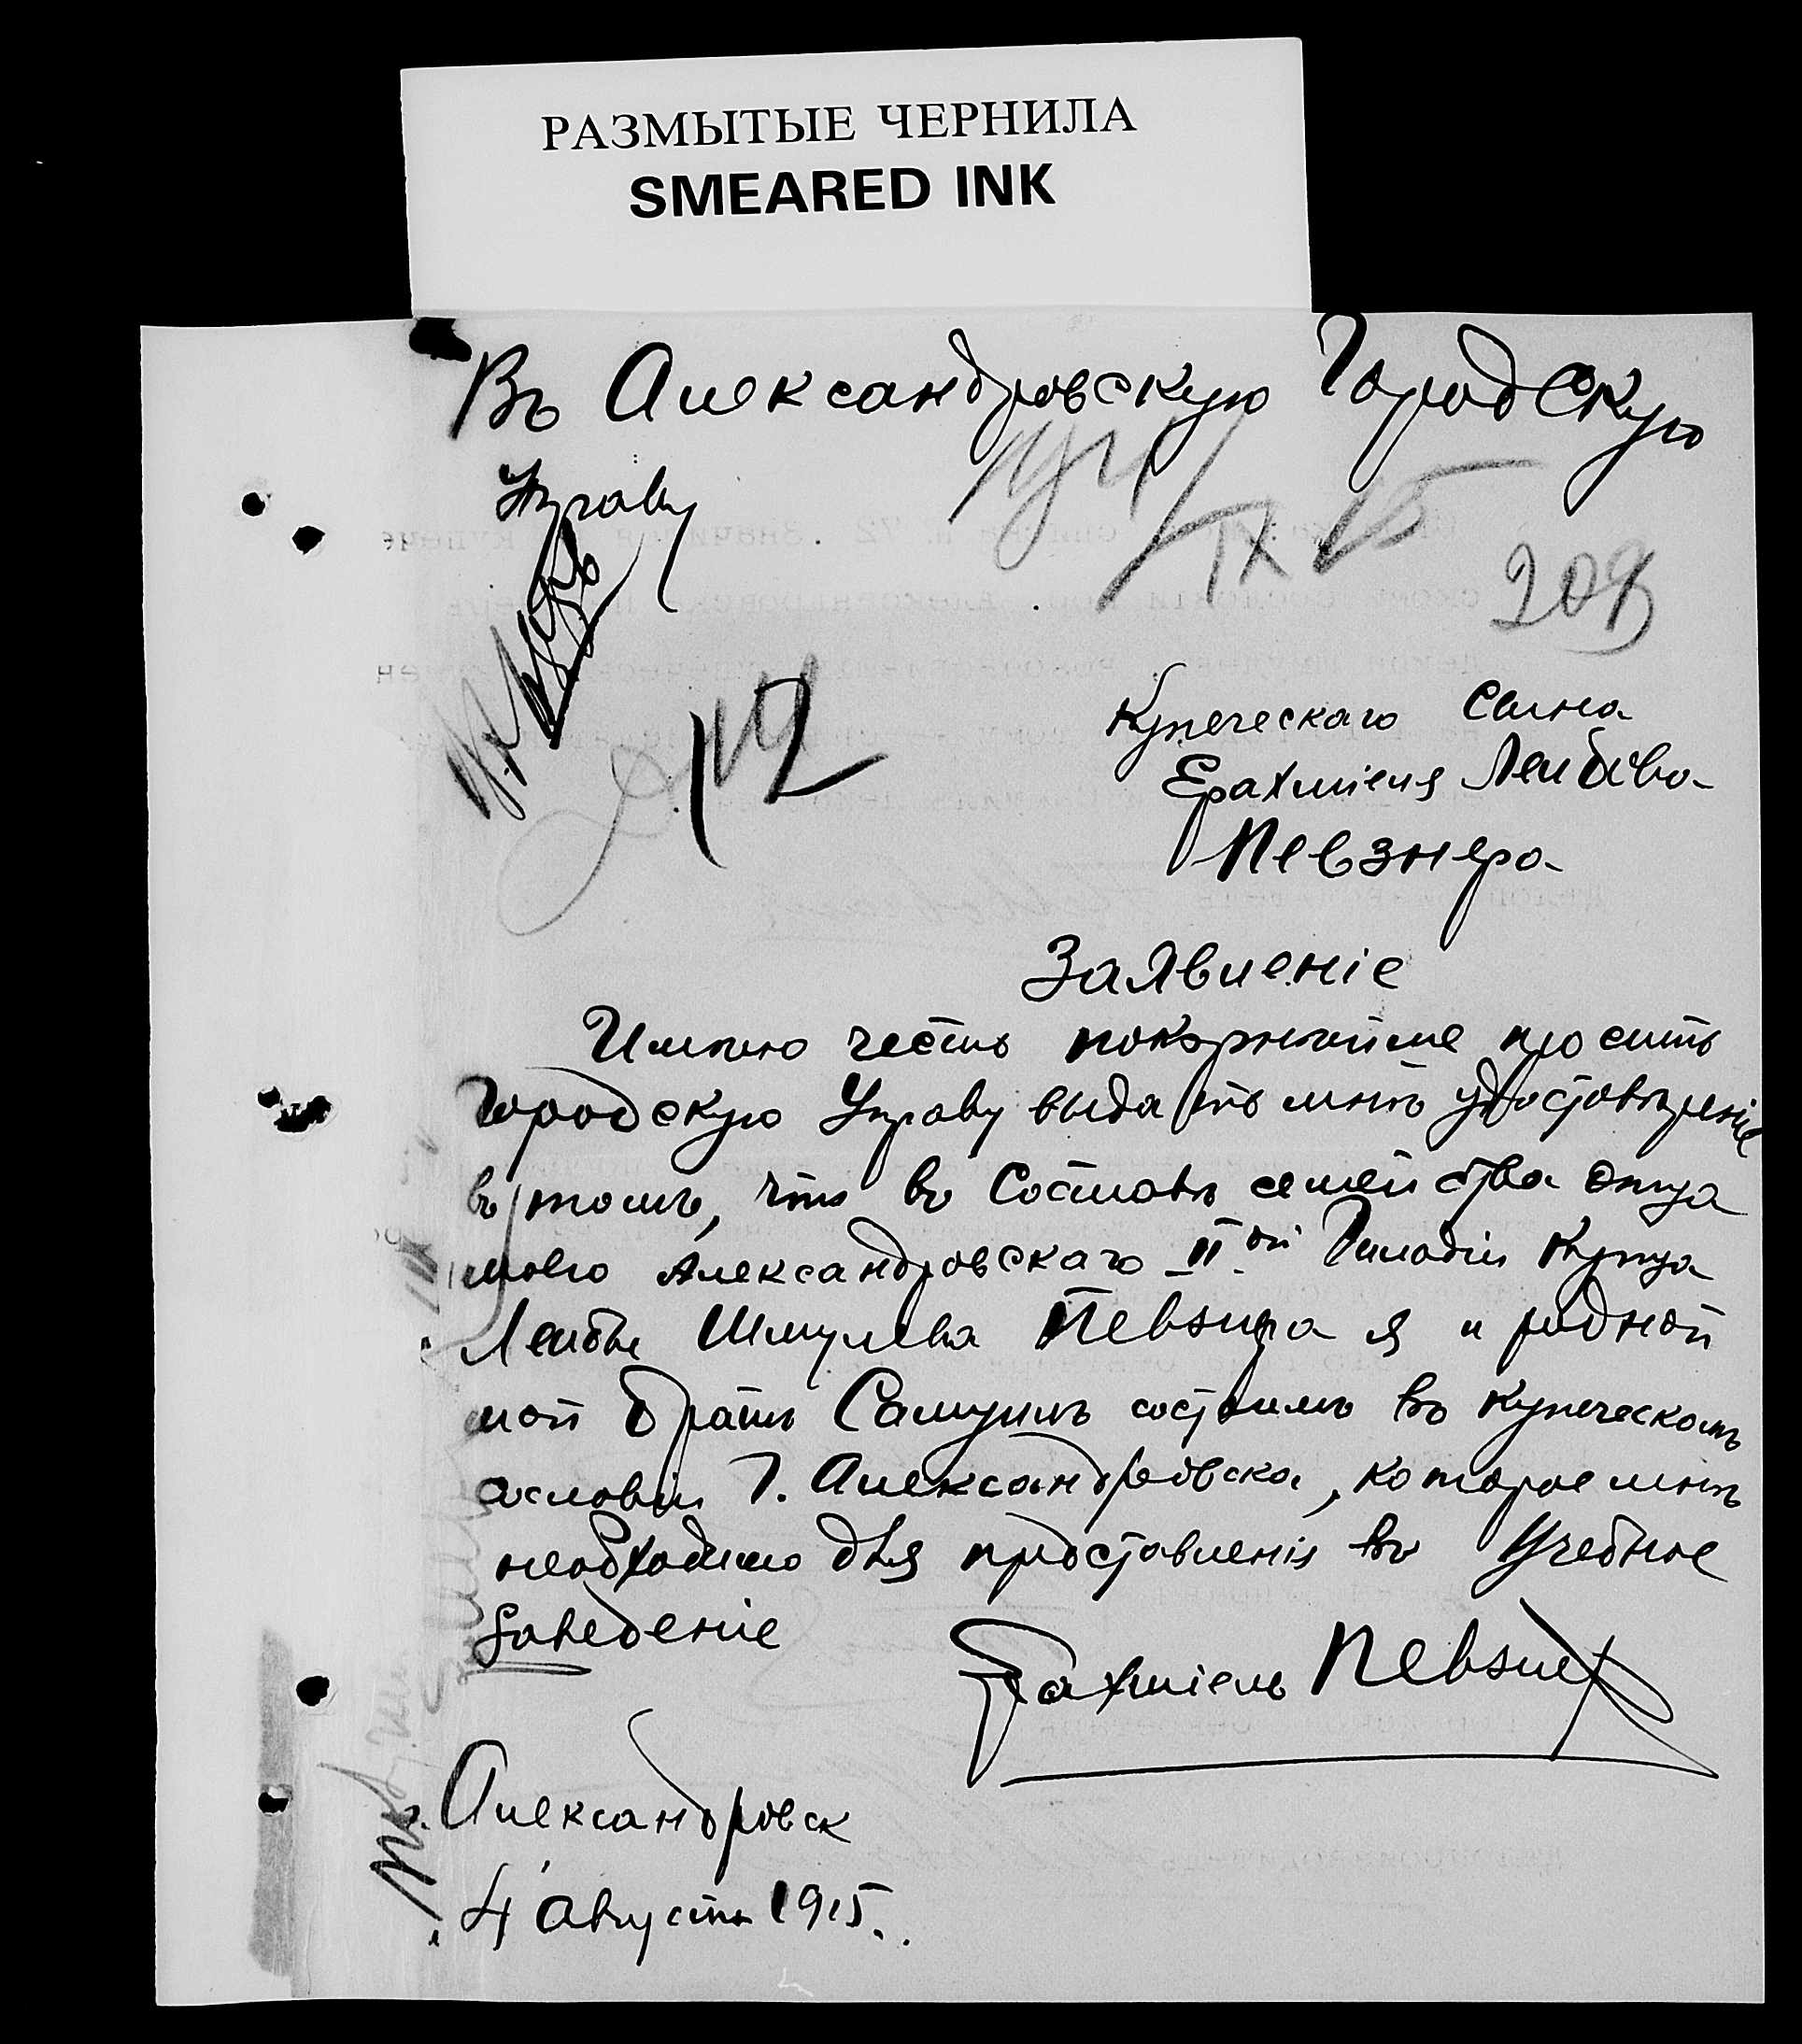 РАЗМЫТЫЕ ЧЕРНИЛА
SMEARED INK
Въ Александровскую Городскую
Управу
209
112
Купеческаго Сына
Ерахміеля Лейбова
Певзнера
Заявленіе
Имѣю честь покорнѣйше просить
Городскую Управу выдать мнѣ удостовѣреніе
въ томъ, что въ Составѣ семейства Отца
моего Александровскаго II ой Гильдіи Купца
Лейбы Шмулева Певзнера я и родной
мой братъ Самуилъ состоимъ въ купеческомъ
сословіи Г. Александровска, которое мнѣ
необходимо для представленія въ Учебное
Заведеніе
Ерахміель Певзнер
г. Александровск
4 Августа 1915.